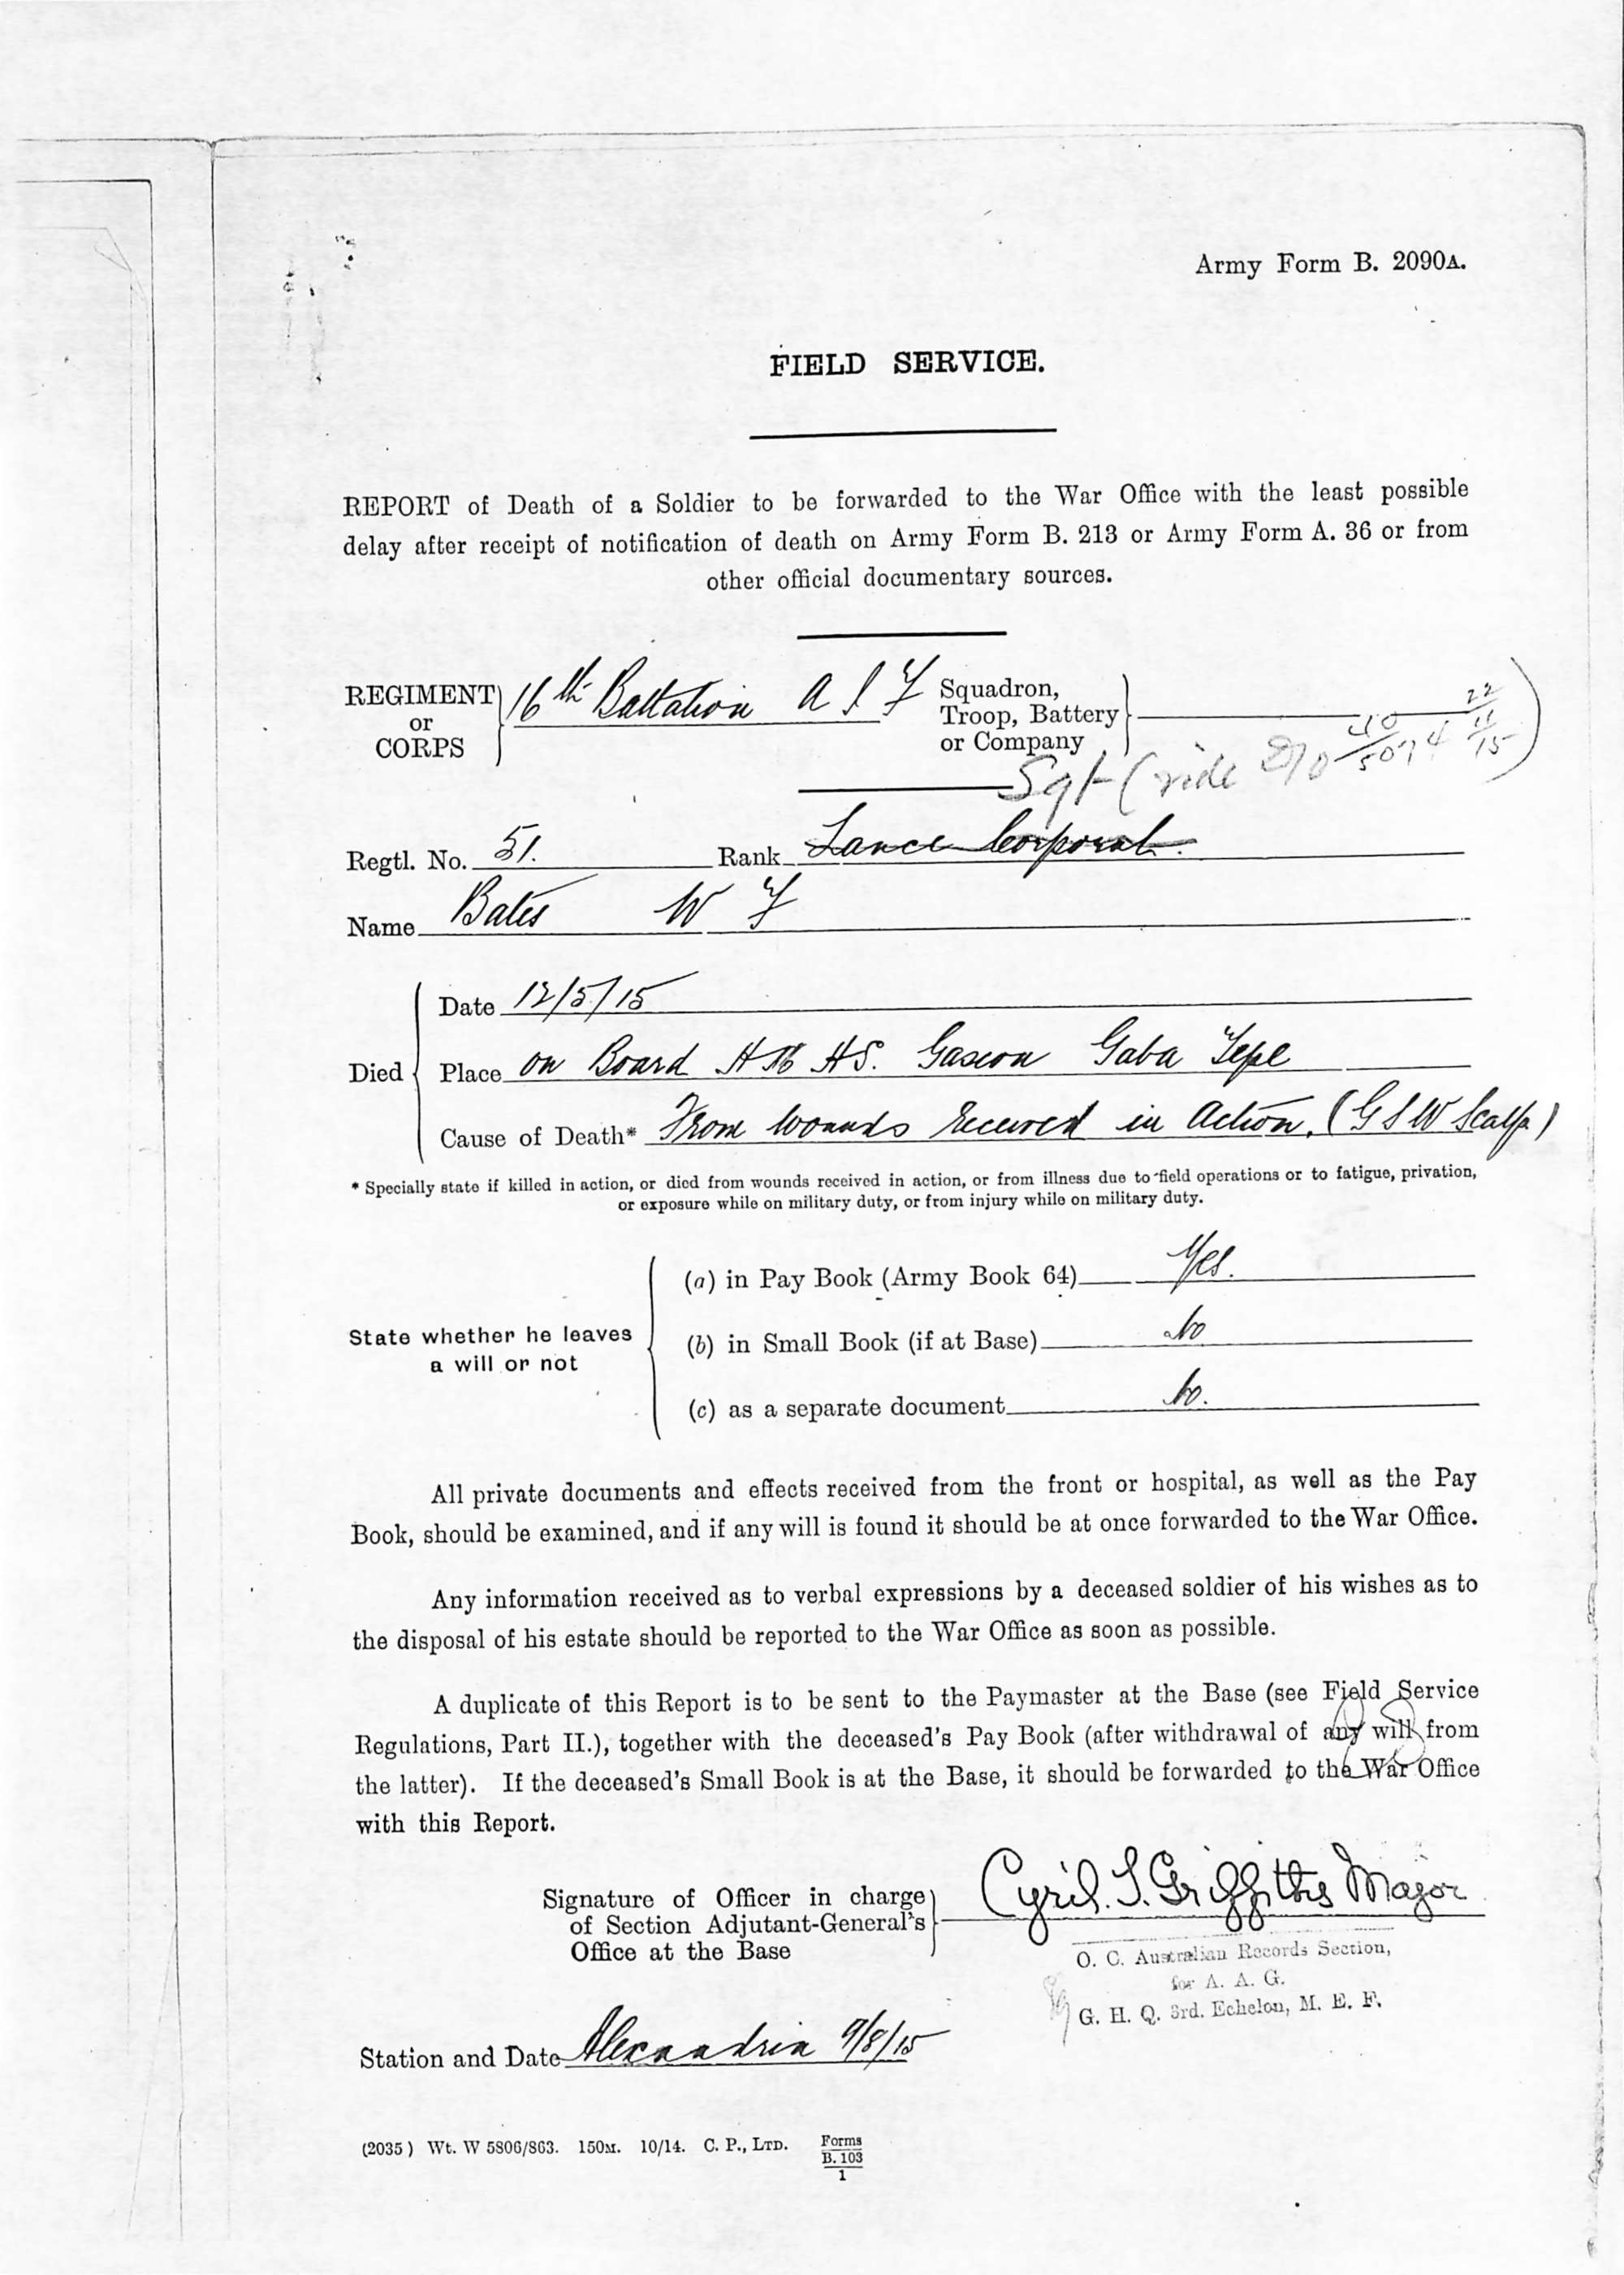 Army Form B. 2090A.
FIELD SERVICE.
REPORT of Death of a Soldier to be forwarded to the War Office with the least possible
delay after receipt of notification of death on Army Form B. 213 or Army Form A. 36 or from
other official documentary sources.
REGIMENT or CORPS 16th Battalion A I F Squadron, Troop, Battery or Company
Sgt (vide 40/5074 22/11/15)
Regtl. No. 51. Rank Lance Corporal.
Name Bates W F
Died
Date 12/5/15
Place on Board H M H S. Gascon Gaba Tepe
Cause of Death* From wounds received in Action. (G S W Scalp)
* Specially state if killed in action, or died from wounds received in action, or from illness due to field operations or to fatigue, privation,
or exposure while on military duty, or from injury while on military duty.
State whether he leaves
a will or not
(a) in Pay Book (Army Book 64) Yes.
(b) in Small Book (if at Base) No
(c) as a separate document No.
All private documents and effects received from the front or hospital, as well as the Pay
Book, should be examined, and if any will is found it should be at once forwarded to the War Office.
Any information received as to verbal expressions by a deceased soldier of his wishes as to
the disposal of his estate should be reported to the War Office as soon as possible.
A duplicate of this Report is to be sent to the Paymaster at the Base (see Field Service
Regulations, Part II.), together with the deceased's Pay Book (after withdrawal of any will from
the latter). If the deceased's Small Book is at the Base, it should be forwarded to the War Office
with this Report.
Signature of Officer in charge
of Section Adjutant-General's
Office at the Base
Cyril. T. Griffiths Major
O. C. Australian Records Section,
for A. A. G.
G. H. Q. 3rd. Echelon, M. E. F.
Station and Date Alexandria 9/8/15
(2035) Wt. W 5806/863. 150M. 10/14. C. P., LTD. Forms B. 103 1